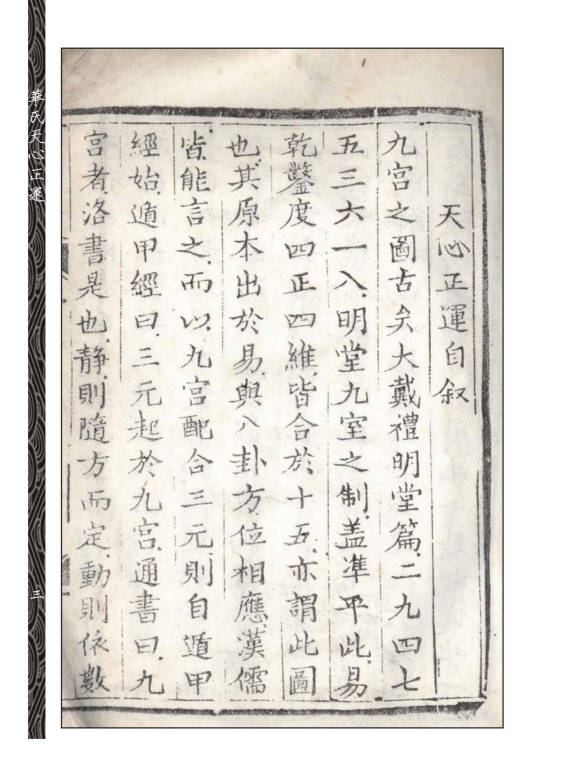 天心正運自叙
九宮之圖古矣大戴禮明堂篇二九四七
五三六一八明堂九室之制盖準乎此易
乾鑿度四正四維皆合於十五亦謂此圖
也其原本出於易與八卦方位相應漢儒
皆能言之而以九宮配合三元則自遁甲
經始遁甲經曰三元起於九宮通書曰九
宮者洛書是也静則隨方而定動則依數
華氏天心正運
三